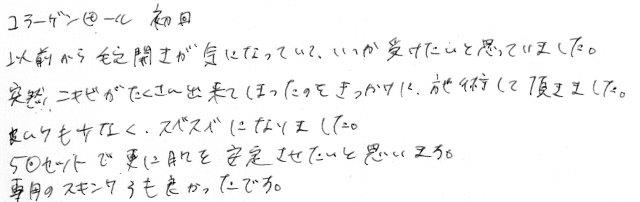 コラーゲンピール 初回
以前から毛穴開きが気になっていて、いつか受けたいと思っていました。
突然、ニキビがたくさん出来てしまったのをきっかけに、施術して頂きました。
痛いケも少なく、スベスベになりました。
5回セットで更に肌を安定させたいと思います。
専用のスキンケアも良かったです。